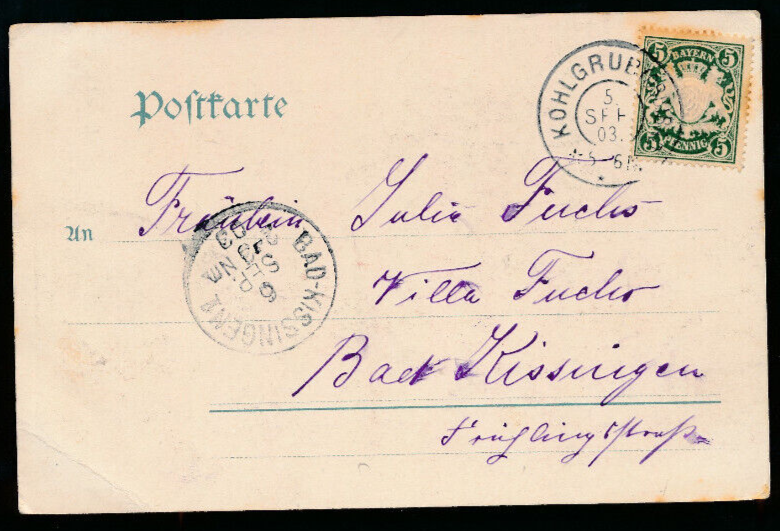 Postkarte
KOHLGRUB
5.
SEP
03.
5 BAYERN 5
5 PFENNIG 5
An
Fräulein Julie Fuchs
Villa Fuchs
Bad Kissingen
Frühlingstraße
BAD-KISSINGEN
6
SEP.
03